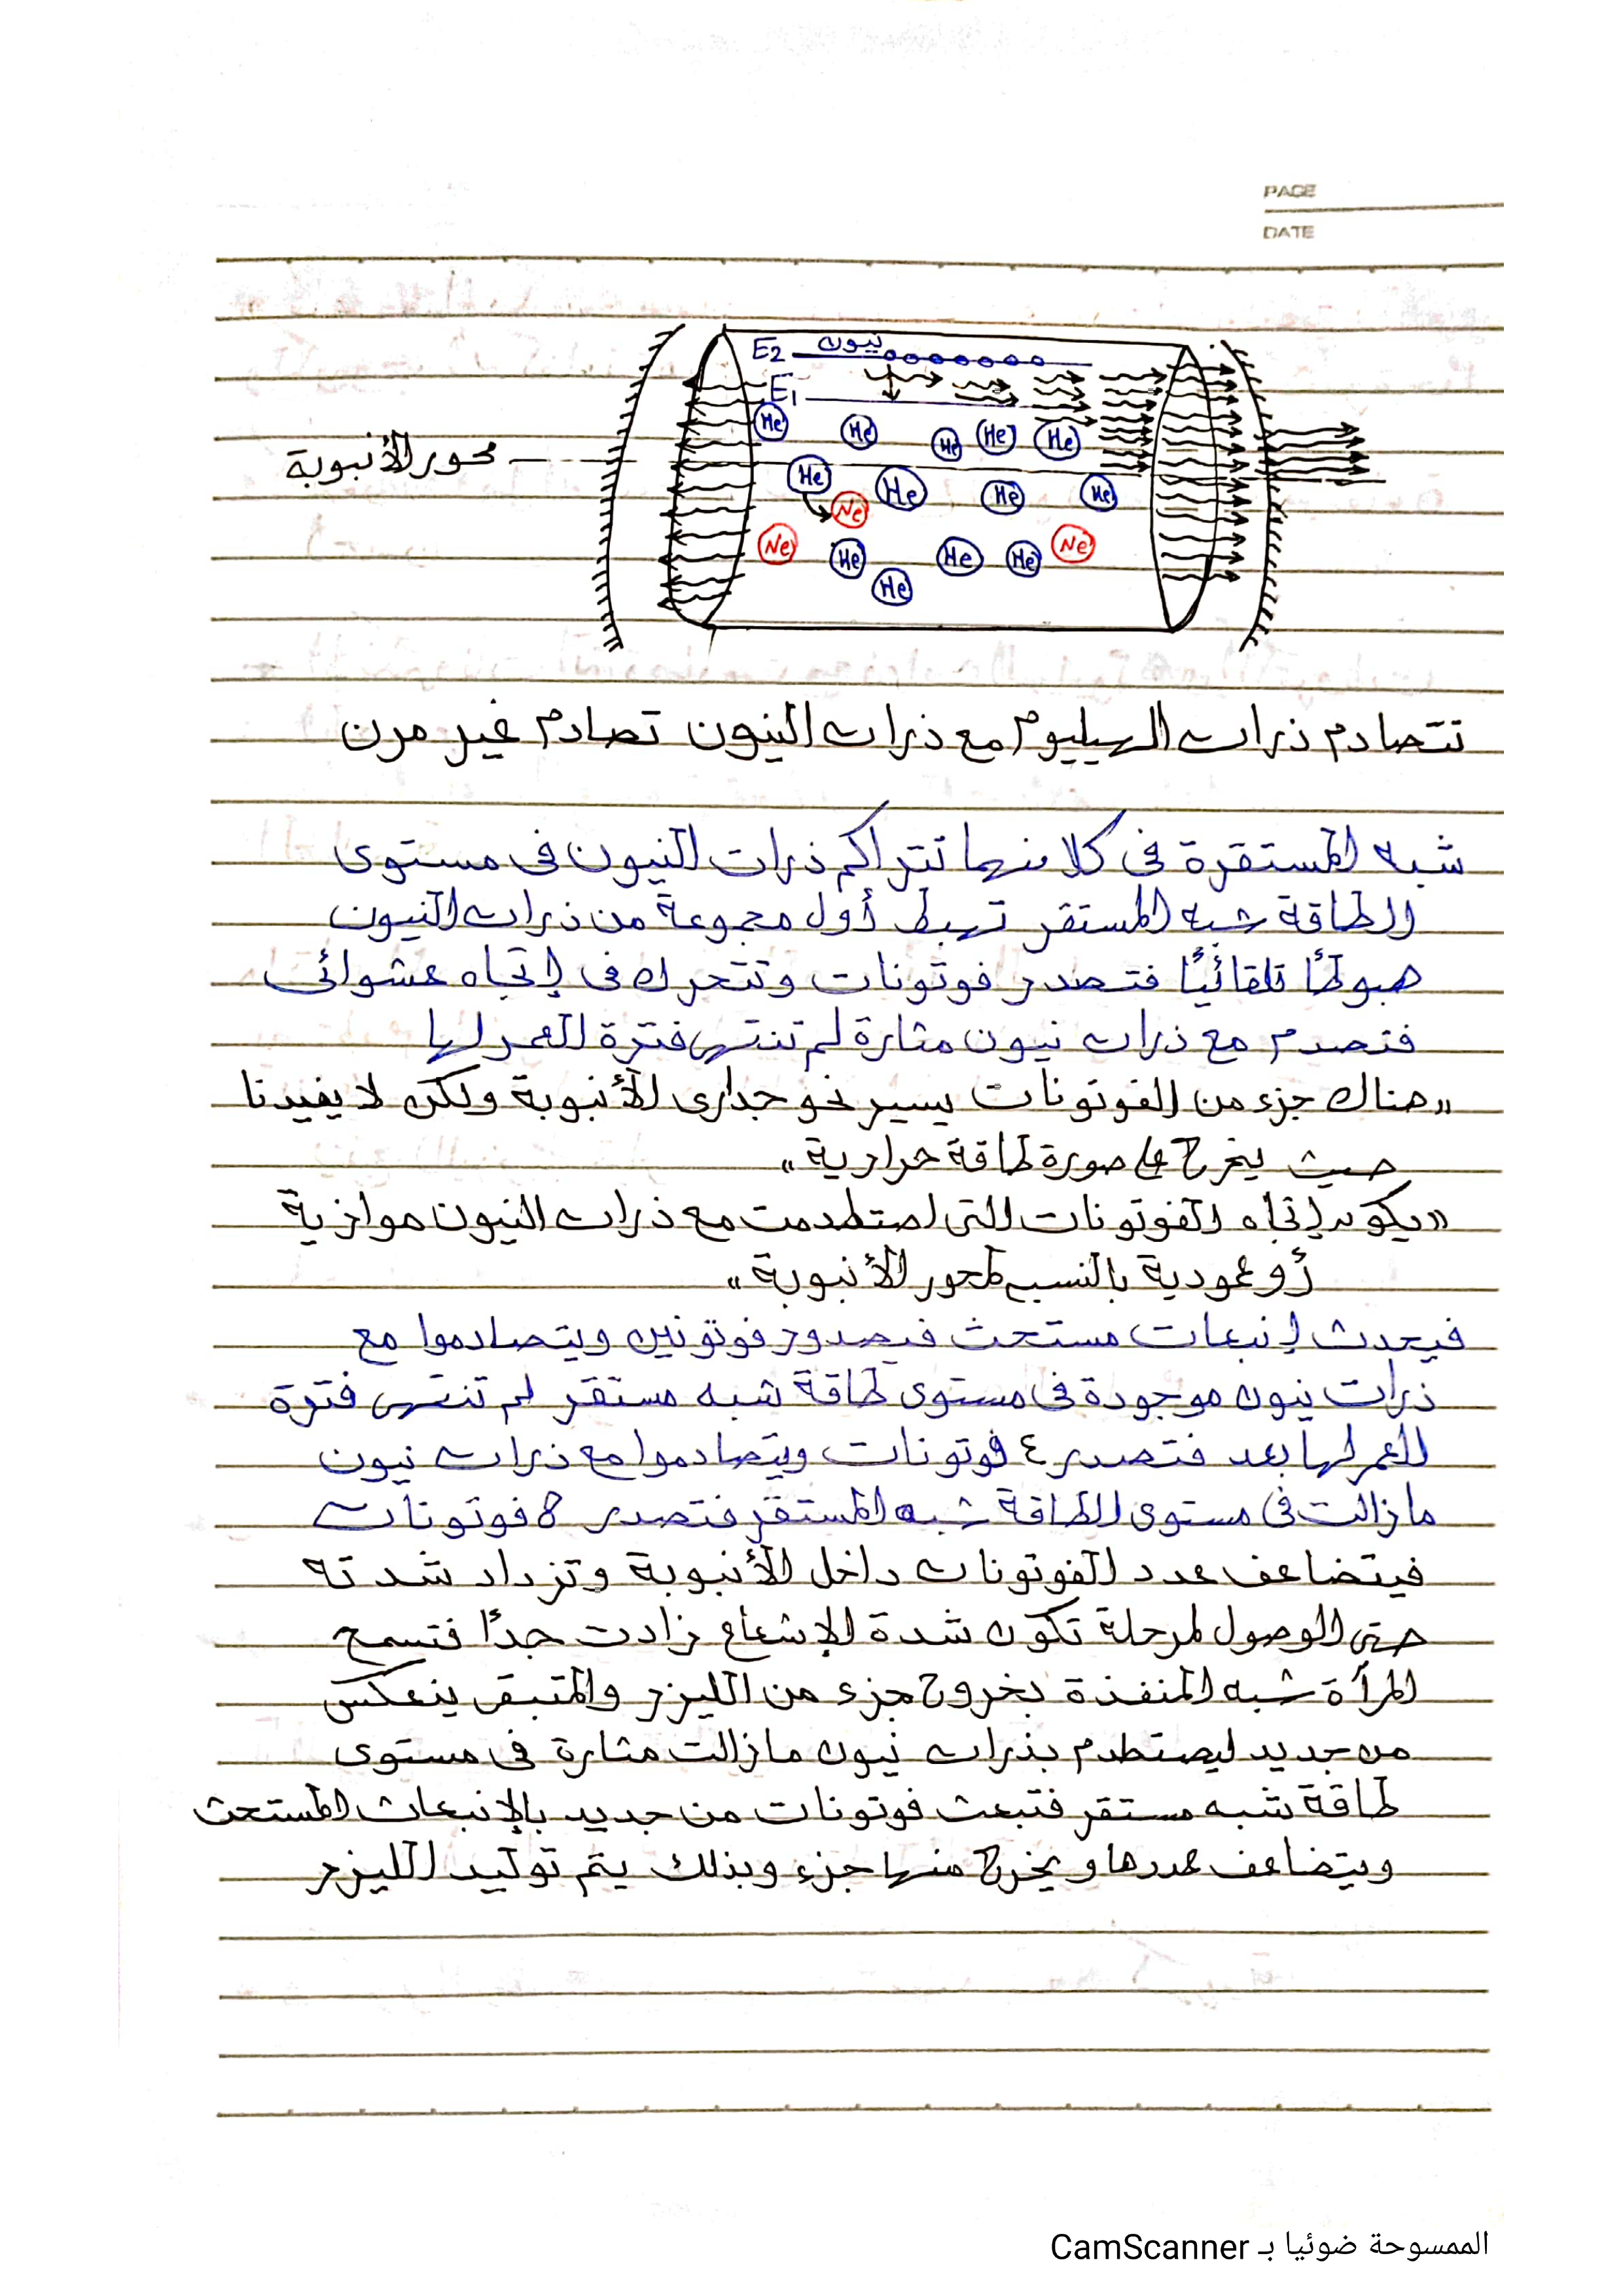 PAGE
DATE
E2 نيون
E1
He He He He He
محور الأنبوبة
He He He He
Ne
Ne He He He Ne
He
تتصادم ذرات الهيليوم مع ذرات النيون تصادم غير مرن
شبه المستقرة فى كلا منهما تتراكم ذرات النيون فى مستوى
الطاقة شبه المستقر تهبط أول مجموعة من ذرات النيون
هبوطًا تلقائيًا فتصدر فوتونات وتتحرك فى إتجاه عشوائى
فتصدم مع ذرات نيون مثارة لم تنتهى فترة العمر لها
"هناك جزء من الفوتونات يسير نحو جدارى الأنبوبة ولكن لا يفيدنا
حيث يخرج على صورة طاقة حرارية"
"يكون إتجاه الفوتونات التى اصتطدمت مع ذرات النيون موازية
أو عمودية بالنسبة لمحور الأنبوبة"
فيحدث إنبعاث مستحث فيصدور فوتونين ويتصادموا مع
ذرات نيون موجودة فى مستوى طاقة شبه مستقر لم تنتهى فترة
العمر لها بعد فتصدر ٤ فوتونات ويتصادموا مع ذرات نيون
مازالت فى مستوى الطاقة شبه المستقر فتصدر 8 فوتونات
فيتضاعف عدد الفوتونات داخل الأنبوبة وتزداد شدته
حتى الوصول لمرحلة تكون شدة الإشعاع زادت جدًا فتسمح
المرأة شبه المنفذة بخروج جزء من الليزر والمتبقى ينعكس
من جديد ليصتطدم بذرات نيون مازالت مثارة فى مستوى
طاقة شبه مستقر فتبعث فوتونات من جديد بالإنبعاث المستحث
ويتضاعف عددها ويخرج منها جزء وبذلك يتم توليد الليزر
الممسوحة ضوئيا بـ CamScanner